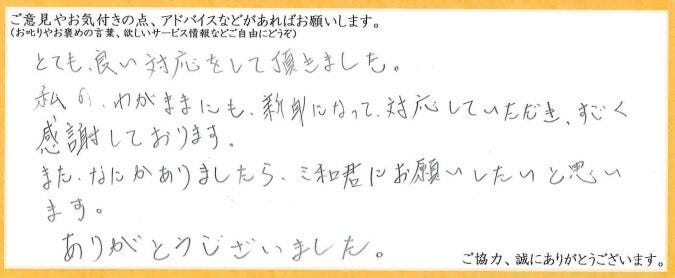 ご意見やお気付きの点、アドバイスなどがあればお願いします。
(お叱りやお褒めの言葉、欲しいサービス情報などご自由にどうぞ)
とても、良い対応をして頂きました。
私の、わがままにも、新身になって、対応していただき、すごく
感謝しております。
また、なにかありましたら、三和君にお願いしたいと思い
ます。
ありがとうございました。
ご協力、誠にありがとうございます。